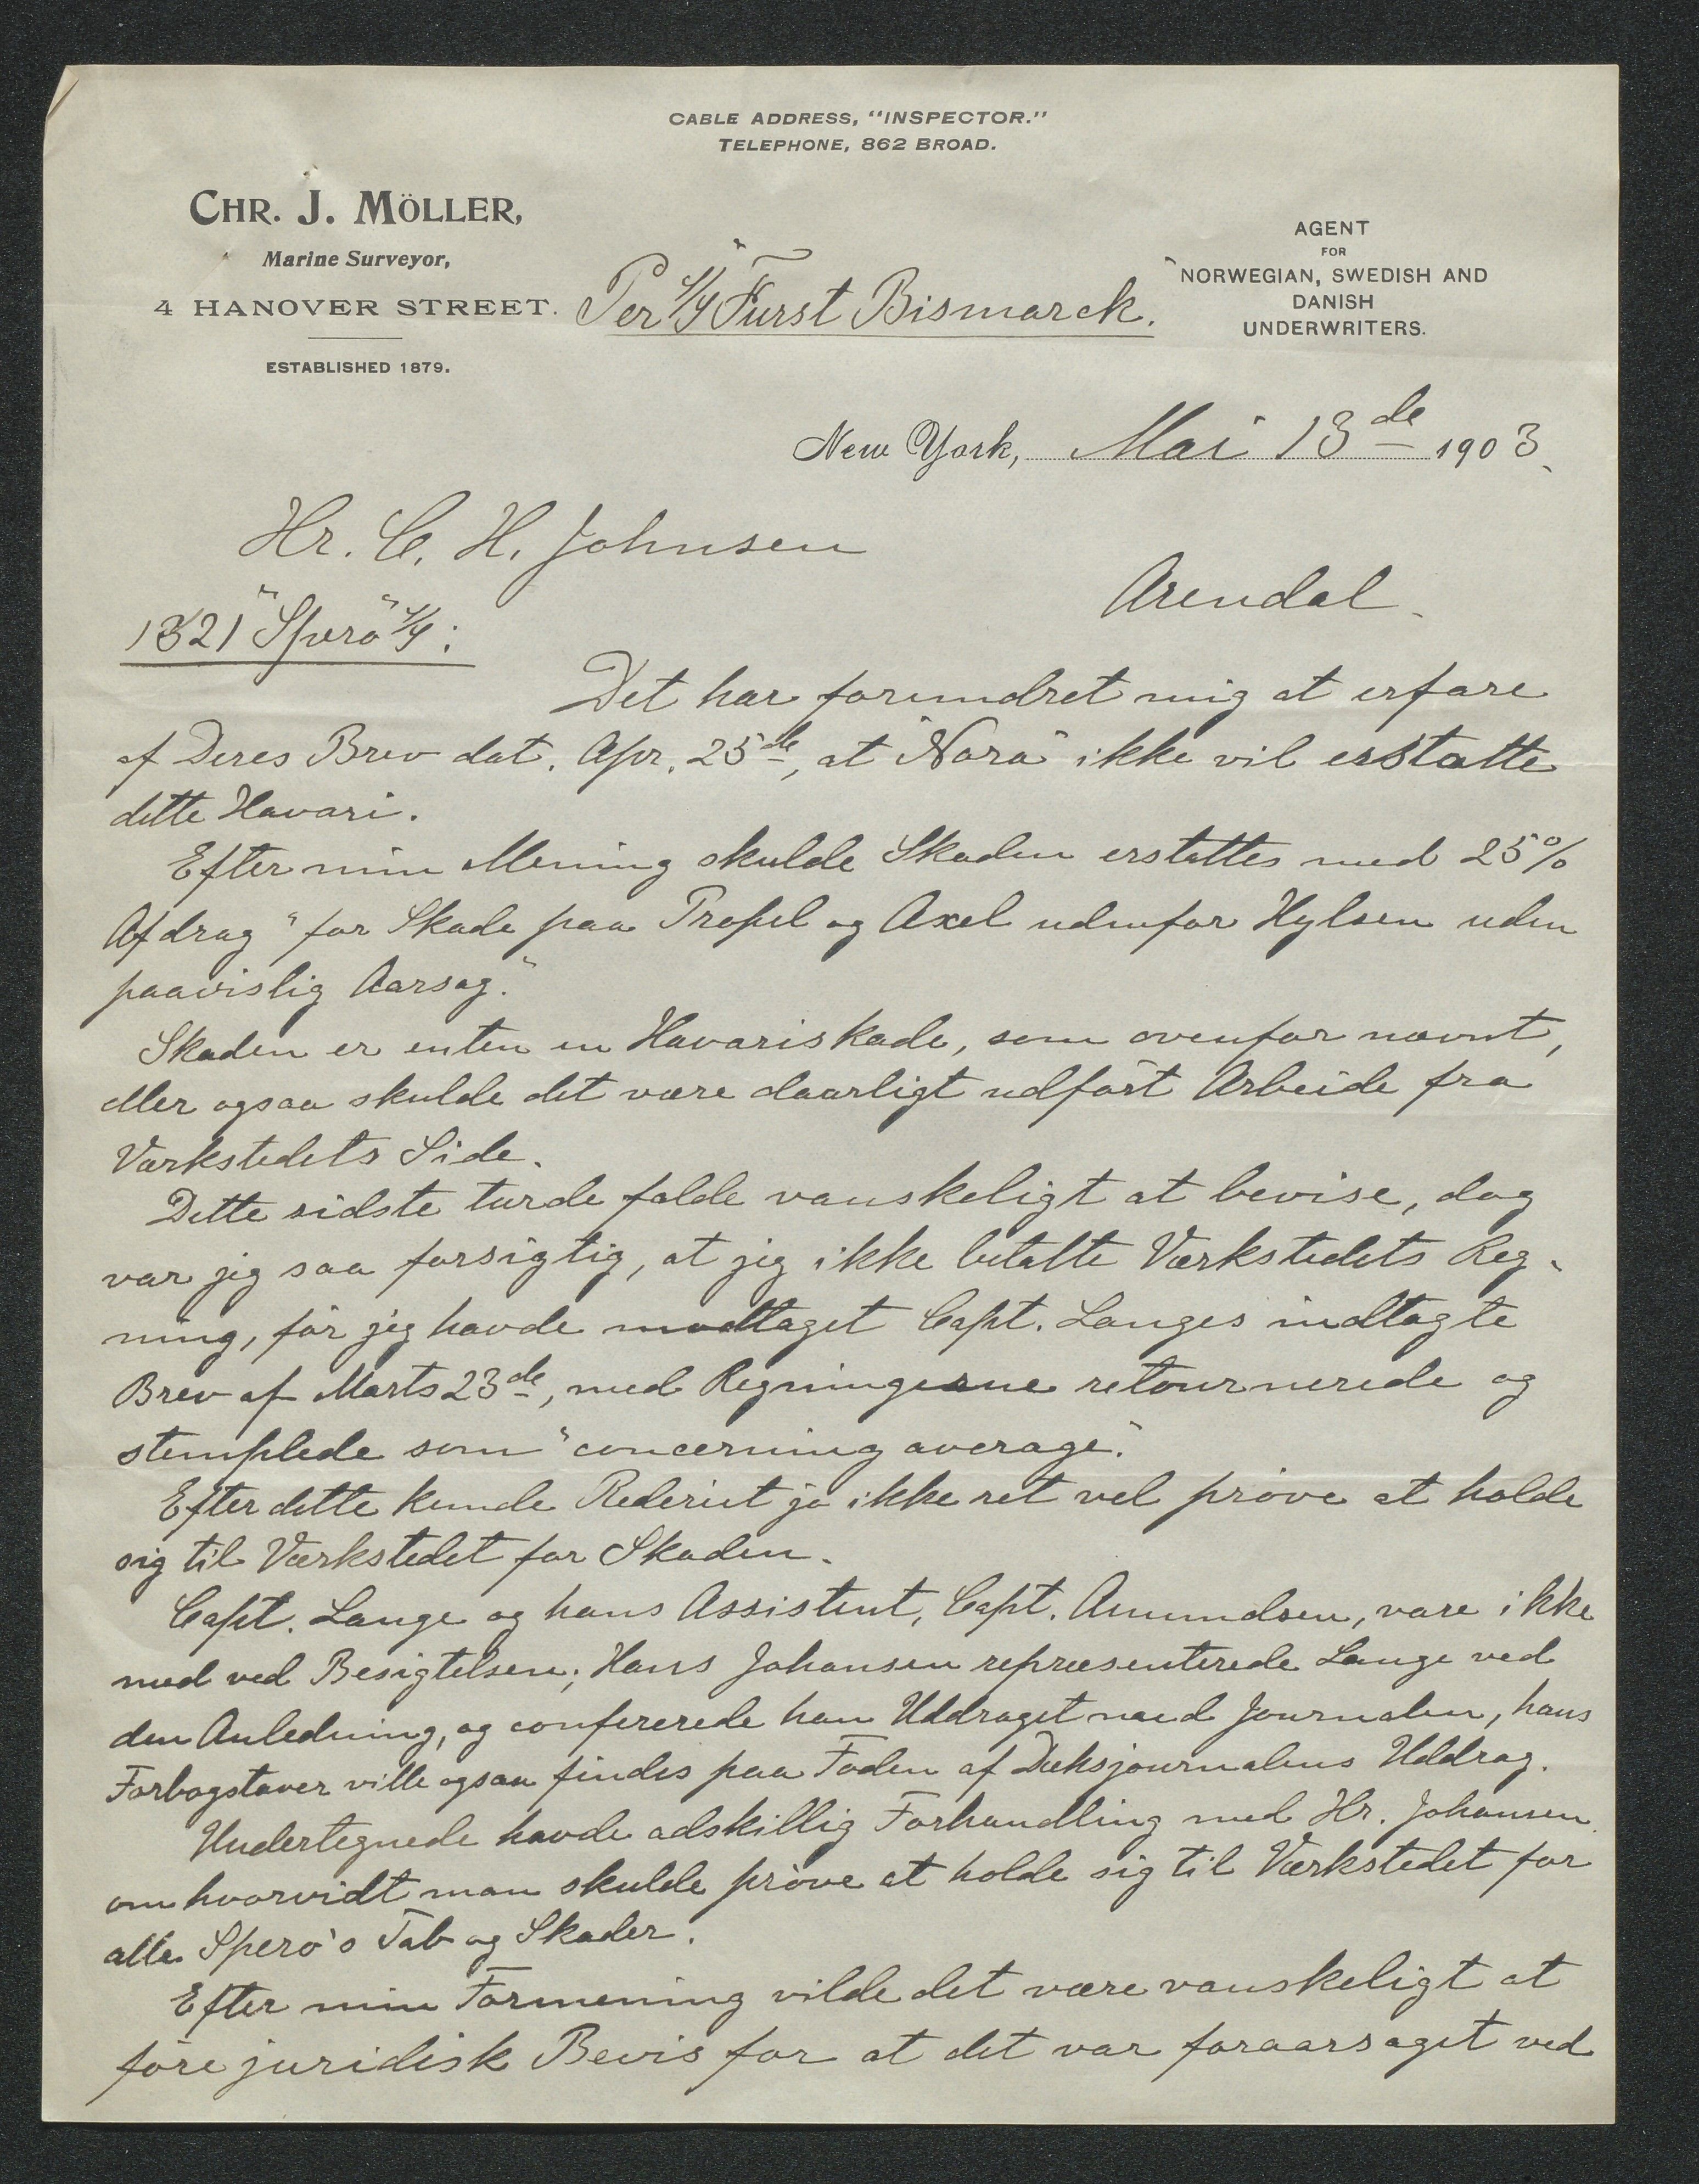 CABLE ADDRESS, "INSPECTOR."
TELEPHONE, 862 BROAD.
CHR. J. MÖLLER,
Marine Surveyor,
4 HANOVER STREET.
ESTABLISHED 1879.
Per S/S "Fürst Bismarck.
AGENT
FOR
NORWEGIAN, SWEDISH AND
DANISH
UNDERWRITERS.
New York, Mai 13de 1903.
Hr. C. H. Johnsen
Arendal.
1321 "Spero" S/S:
Det har forundret mig at erfare
af Deres Brev dat. Apr. 25de, at "Nora" ikke vil erstatte
dette Havari.
Efter min Mening skulde Skaden erstattes med 25%
Afdrag "for Skade paa Propel og Axel udenfor Hylsen uden
paavislig Aarsag."
Skaden er enten en Havariskade, som ovenfor nævnt,
eller ogsaa skulde det være daarligt udført Arbeide fra
Værkstedets Side.
Dette sidste turde falde vanskeligt at bevise, dog
var jeg saa forsigtig, at jeg ikke betalte Værkstedets Reg-
ning, før jeg havde modtaget Capt. Langes indtagte
Brev af Marts 23de, med Regningerne retournerede og
stemplede som "concerning average".
Efter dette kunde Rederiet jo ikke ret vel prøve at holde
sig til Værkstedet for Skaden.
Capt. Lange og hans Assistent, Capt. Amundsen, vare ikke
med ved Besigtelsen; Hans Johansen repræsenterede Lange ved
den Anledning, og confererede han Uddraget med Journalen, hans
Forbogstaver ville ogsaa findes paa Foden af Dæksjournalens Uddrag.
Undertegnede havde adskillig Forhandling med Hr. Johansen
om hvorvidt man skulde prøve at holde sig til Værkstedet for
alle Spero's Tab og Skader.
Efter min Formening vilde det være vanskeligt at
føre juridisk Bevis for at det var foraarsaget ved